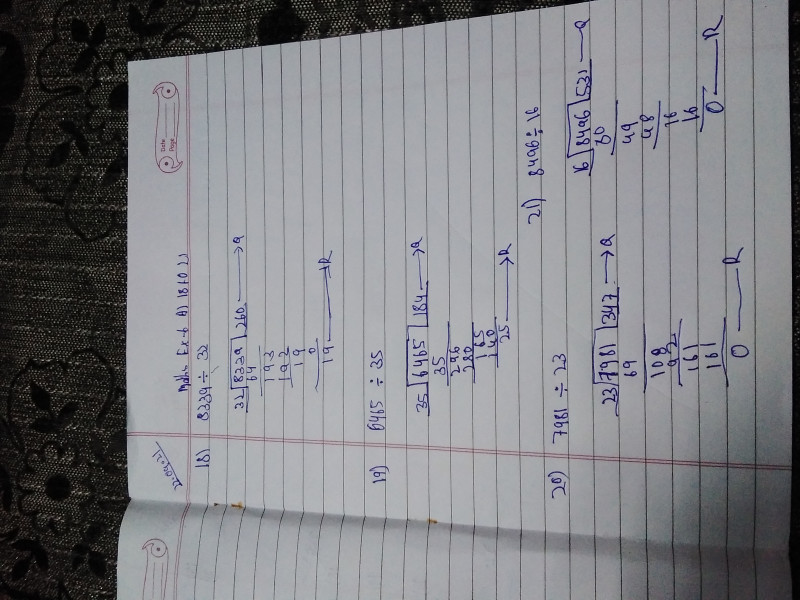 Date
Page
22-09-21
Maths Ex-6 A) 18 to 21
18) 8339 ÷ 32
32 8339 260 → Q
64
193
192
19
0
19 → R
19) 6465 ÷ 35
35 6465 184 → Q
35
296
280
165
140
25 → R
20) 7981 ÷ 23
23 7981 347 → Q
69
108
92
161
161
0 — R
21) 8496 ÷ 16
16 8496 531 — Q
80
49
48
16
16
0 — R